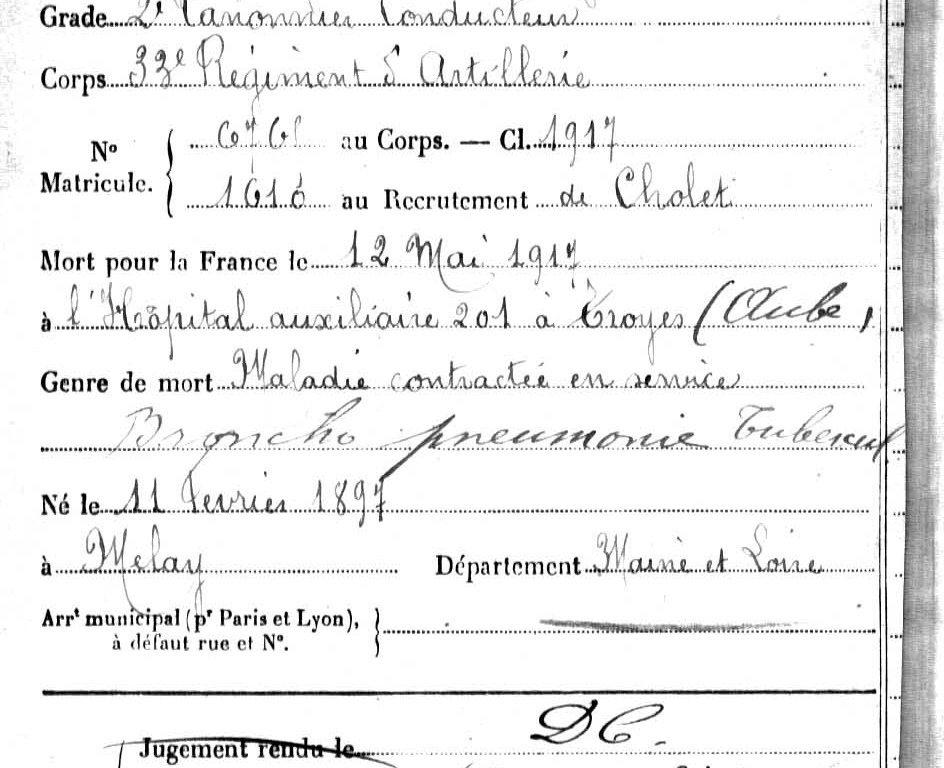 Grade 2e Canonnier Conducteur
Corps 33e Régiment d'Artillerie
No Matricule. { 6761 au Corps. — Cl. 1917
1616 au Recrutement de Cholet
Mort pour la France le 12 Mai 1917
à l'Hôpital auxiliaire 201 à Troyes (Aube,
Genre de mort Maladie contractée en service
Broncho pneumonie Tubercul
Né le 11 février 1897
à Melay Département Maine et Loire
Arrt municipal (pr Paris et Lyon), }
à défaut rue et No.
DC.
Jugement rendu le